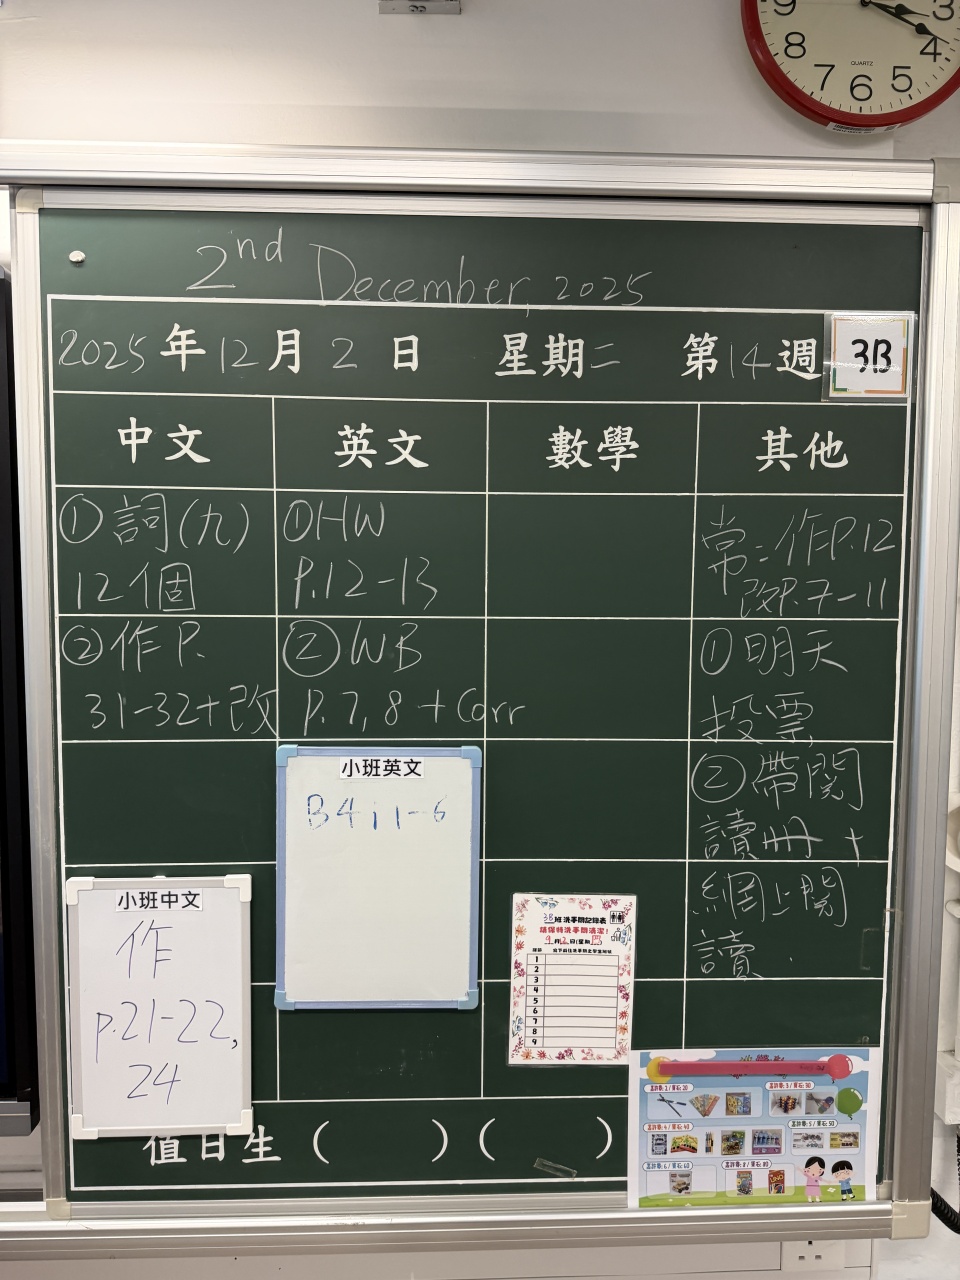 9 3
8 4
7 6 5
QUARTZ
2nd December, 2025
2025年12月2日 星期二 第14週
3B
中文 英文 數學 其他
①詞(九)
12個
②作P.
31-32+改
①HW
P.12-13
②WB
P.7, 8 + Corr
常:作P.12
改P.7-11
①明天
投票
②帶閱
讀冊+
網上閱
讀.
小班英文
B4i1-6
小班中文
作
p.21-22,
24
3B班洗手間記錄表
請保持洗手間清潔!
1
2
3
4
5
6
7
8
9
UNO
值日生 ( ) ( )